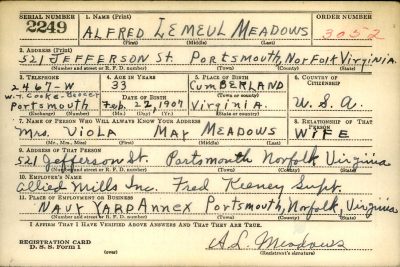 SERIAL NUMBER 1. NAME (Print) ORDER NUMBER
2249 ALFRED LEMEUL MEADOWS 3052
(First) (Middle) (Last)
2. ADDRESS (Print)
521 JEFFERSON St. PORTSMOUTH, NORFOLK VIRGINIA.
(Number and street or R. F. D. number) (Town) (County) (State)
3. TELEPHONE 4. AGE IN YEARS 5. PLACE OF BIRTH 6. COUNTRY OF CITIZENSHIP
2467-W 33 CUMBERLAND
W.T. COOKE-GROCER DATE OF BIRTH (Town or county)
Portsmouth Feb. 22, 1907 Virginia. U.S.A.
(Exchange) (Number) (Mo.) (Day) (Yr.) (State or country)
7. NAME OF PERSON WHO WILL ALWAYS KNOW YOUR ADDRESS 8. RELATIONSHIP OF THAT PERSON
Mrs. VIOLA MAY MEADOWS WIFE
(Mr., Mrs., Miss) (First) (Middle) (Last)
9. ADDRESS OF THAT PERSON
521 Jefferson St. Portsmouth Norfolk Virginia
(Number and street or R. F. D. number) (Town) (County) (State)
10. EMPLOYER'S NAME
Allied Mills Inc. Fred Keeney Supt.
11. PLACE OF EMPLOYMENT OR BUSINESS
NAVY YARD ANNEX Portsmouth, Norfolk, Virginia
(Number and street or R. F. D. number) (Town) (County) (State)
I AFFIRM THAT I HAVE VERIFIED ABOVE ANSWERS AND THAT THEY ARE TRUE.
REGISTRATION CARD A. L. Meadows
D. S. S. Form 1 (Registrant's signature)